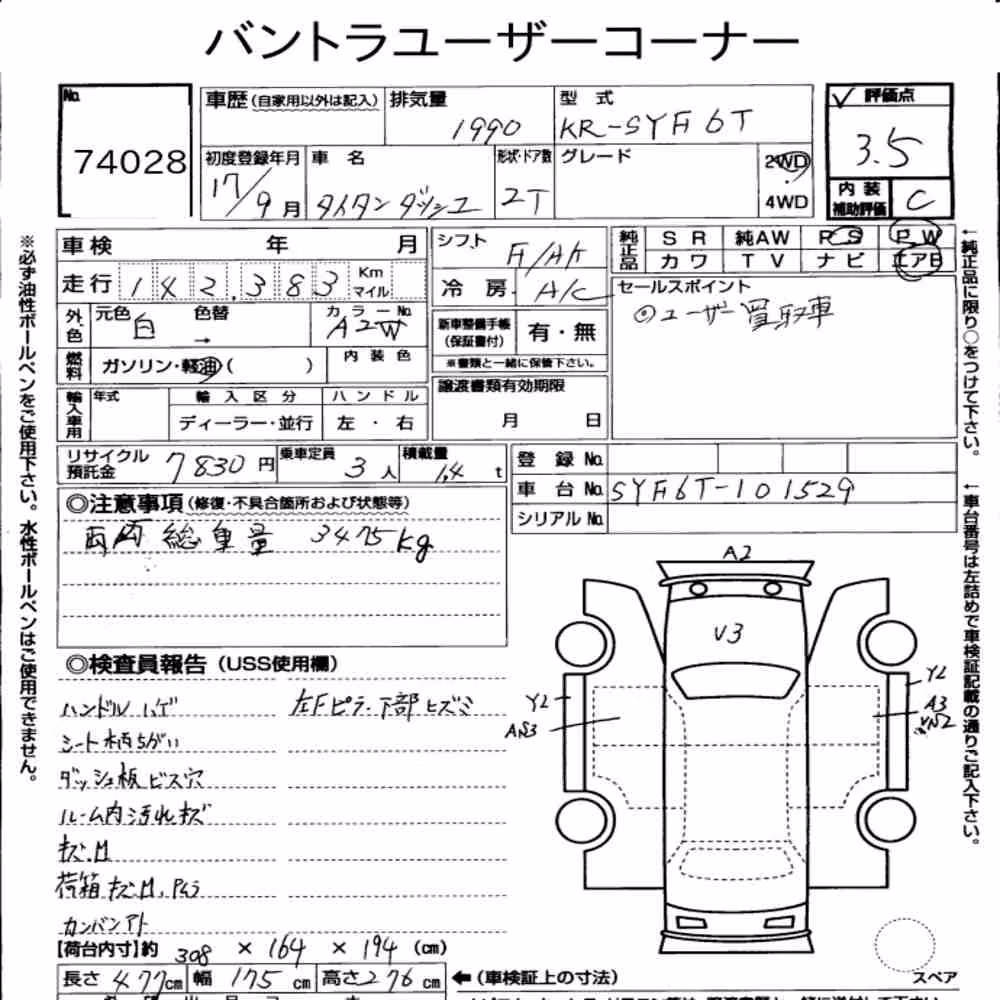 バントラユーザーコーナー
No. 74028
車歴(自家用以外は記入) 排気量 1990 型式 KR-SYF6T
初度登録年月 17/9月 車名 タイタン ダッシュ 形状・ドア数 2T グレード 2WD 4WD
評価点 3.5
内装補助評価 C
車検 年 月
走行 142,383 Km マイル
外色 元色 白 色替 → カラーNo. A2W
燃料 ガソリン・軽油( ) 内装色
輸入車用 年式 輸入区分 ディーラー・並行 ハンドル 左・右
シフト F/AT
冷房 A/C
新車整備手帳(保証書付) 有・無
※書類と一緒に保管下さい。
譲渡書類有効期限 月 日
純正品 SR 純AW PS PW
カワ TV ナビ エアB
セールスポイント
◎ユーザー買取車
リサイクル預託金 7830円 乗車定員 3人 積載量 1.4 t
登録No.
車台No. SYF6T-101529
シリアルNo.
◎注意事項(修復・不具合箇所および状態等)
車両総重量 3475kg
◎検査員報告(USS使用欄)
ハンドルハゲ 左Fピラー下部ヒズミ
シート柄ちがい
ダッシュ板ビス穴
ルーム内汚れキズ
キズ.凹
荷箱キズ.凹.
カンバンアト
【荷台内寸】約 308 × 164 × 194 (cm)
長さ 477cm 幅 175 cm 高さ 276 cm ←(車検証上の寸法)
A2
V3
Y2
Y2
A3
スペア
※必ず油性ボールペンをご使用下さい。水性ボールペンはご使用できません。
←純正品に限り○をつけて下さい。
←車台番号は左詰めで車検証記載の通りご記入下さい。